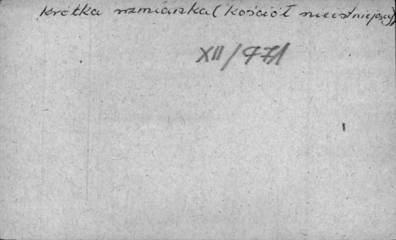 krótka wzmianka (kościół nieistniejący)
XII/771